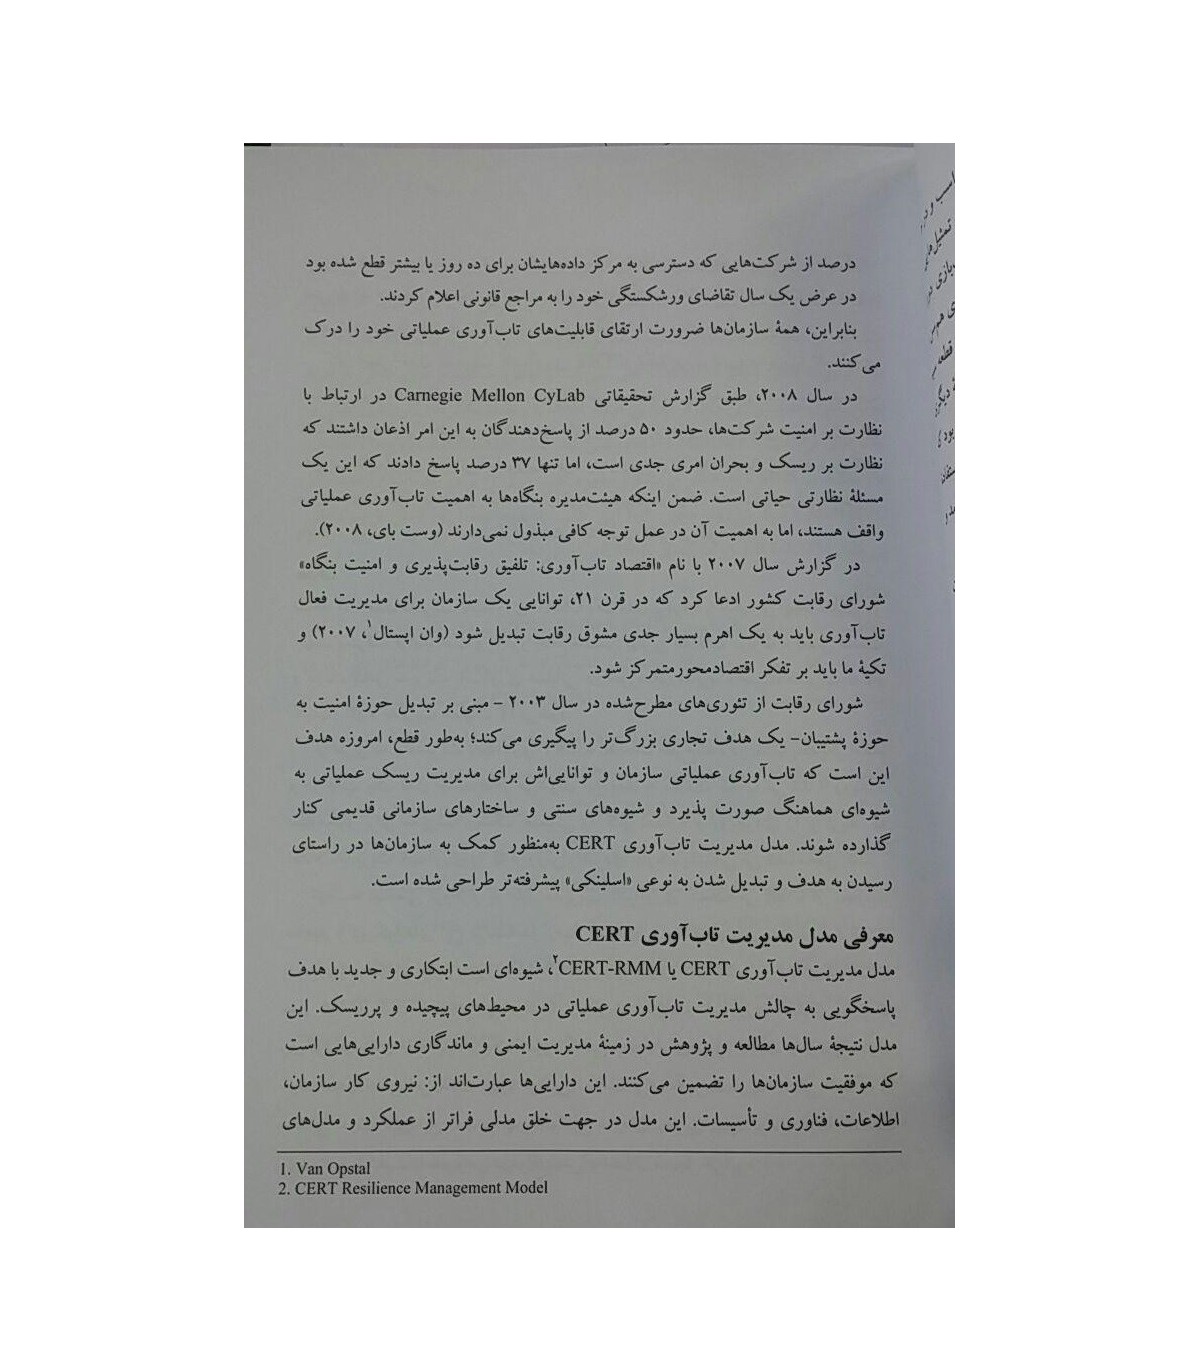 درصد از شرکت‌هایی که دسترسی به مرکز داده‌هایشان برای ده روز یا بیشتر قطع شده بود
در عرض یک سال تقاضای ورشکستگی خود را به مراجع قانونی اعلام کردند.
بنابراین، همهٔ سازمان‌ها ضرورت ارتقای قابلیت‌های تاب‌آوری عملیاتی خود را درک
می‌کنند.
در سال ۲۰۰۸، طبق گزارش تحقیقاتی Carnegie Mellon CyLab در ارتباط با
نظارت بر امنیت شرکت‌ها، حدود ۵۰ درصد از پاسخ‌دهندگان به این امر اذعان داشتند که
نظارت بر ریسک و بحران امری جدی است، اما تنها ۳۷ درصد پاسخ دادند که این یک
مسئلهٔ نظارتی حیاتی است. ضمن اینکه هیئت‌مدیره بنگاه‌ها به اهمیت تاب‌آوری عملیاتی
واقف هستند، اما به اهمیت آن در عمل توجه کافی مبذول نمی‌دارند (وست بای، ۲۰۰۸).
در گزارش سال ۲۰۰۷ با نام «اقتصاد تاب‌آوری: تلفیق رقابت‌پذیری و امنیت بنگاه»
شورای رقابت کشور ادعا کرد که در قرن ۲۱، توانایی یک سازمان برای مدیریت فعال
تاب‌آوری باید به یک اهرم بسیار جدی مشوق رقابت تبدیل شود (وان اپستال۱، ۲۰۰۷) و
تکیهٔ ما باید بر تفکر اقتصادمحورمتمرکز شود.
شورای رقابت از تئوری‌های مطرح‌شده در سال ۲۰۰۳ – مبنی بر تبدیل حوزهٔ امنیت به
حوزهٔ پشتیبان– یک هدف تجاری بزرگ‌تر را پیگیری می‌کند؛ به‌طور قطع، امروزه هدف
این است که تاب‌آوری عملیاتی سازمان و توانایی‌اش برای مدیریت ریسک عملیاتی به
شیوه‌ای هماهنگ صورت پذیرد و شیوه‌های سنتی و ساختارهای سازمانی قدیمی کنار
گذارده شوند. مدل مدیریت تاب‌آوری CERT به‌منظور کمک به سازمان‌ها در راستای
رسیدن به هدف و تبدیل شدن به نوعی «اسلینکی» پیشرفته‌تر طراحی شده است.
معرفی مدل مدیریت تاب‌آوری CERT
مدل مدیریت تاب‌آوری CERT یا CERT-RMM۲، شیوه‌ای است ابتکاری و جدید با هدف
پاسخگویی به چالش مدیریت تاب‌آوری عملیاتی در محیط‌های پیچیده و پرریسک. این
مدل نتیجهٔ سال‌ها مطالعه و پژوهش در زمینهٔ مدیریت ایمنی و ماندگاری دارایی‌هایی است
که موفقیت سازمان‌ها را تضمین می‌کنند. این دارایی‌ها عبارت‌اند از: نیروی کار سازمان،
اطلاعات، فناوری و تأسیسات. این مدل در جهت خلق مدلی فراتر از عملکرد و مدل‌های
1. Van Opstal
2. CERT Resilience Management Model